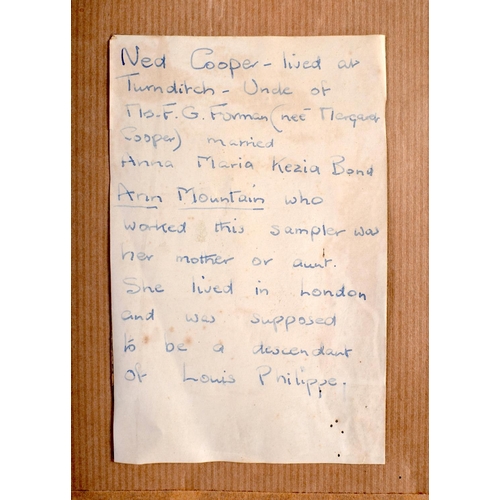 Ned Cooper - lived at
Turnditch - Uncle of
Mrs. F. G. Forman (neé Margaret
Cooper) married
Anna Maria Kezia Bond
Ann Mountain who
worked this sampler was
her mother or aunt.
She lived in London
and was supposed
to be a descendant
of Louis Philippe.